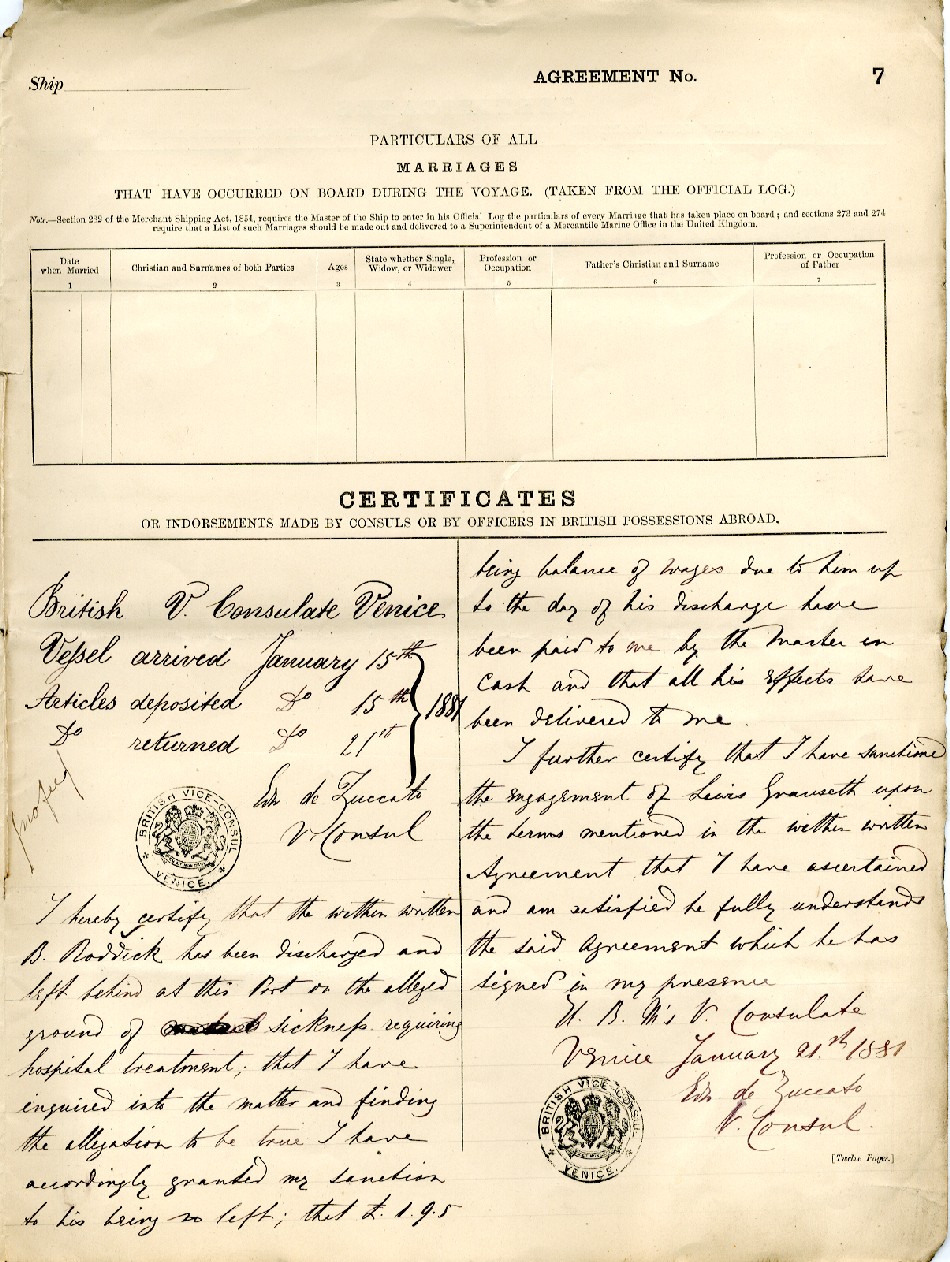 Ship
AGREEMENT No.
7
PARTICULARS OF ALL
MARRIAGES
THAT HAVE OCCURRED ON BOARD DURING THE VOYAGE. (TAKEN FROM THE OFFICIAL LOG.)
Note.—Section 282 of the Merchant Shipping Act, 1854, requires the Master of the Ship to enter in his Official Log the particulars of every Marriage that has taken place on board; and sections 273 and 274
require that a List of such Marriages should be made out and delivered to a Superintendent of a Mercantile Marine Office in the United Kingdom.
Date when Married
Christian and Surnames of both Parties
Ages
State whether Single, Widow, or Widower
Profession or Occupation
Father's Christian and Surname
Profession or Occupation of Father
1 2 3 4 5 6 7
CERTIFICATES
OR INDORSEMENTS MADE BY CONSULS OR BY OFFICERS IN BRITISH POSSESSIONS ABROAD.
British V. Consulate Venice
Vessel arrived January 15th
Articles deposited Do 15th 1881
Do returned Do 21st
Edw de Zuccato
V. Consul
BRITISH VICE-CONSUL VENICE.
I hereby certify that the within written
B. Roddick has been discharged and
left behind at this Port on the alleged
ground of sickness requiring
hospital treatment; that I have
enquired into the matter and finding
the allegation to be true I have
accordingly granted my sanction
to his being so left; that £. 1.9.5
being balance of wages due to him up
to the day of his discharge have
been paid to me by the Master in
Cash and that all his effects have
been delivered to me.
I further certify that I have sanctioned
the engagement of Lewis upon
the terms mentioned in the within written
Agreement that I have ascertained
and am satisfied he fully understands
the said Agreement which he has
signed in my presence
H. B. M's V. Consulate
Venice January 21st 1881
Edw de Zuccato
V. Consul.
BRITISH VICE-CONSUL VENICE.
[Twelve Pages.]